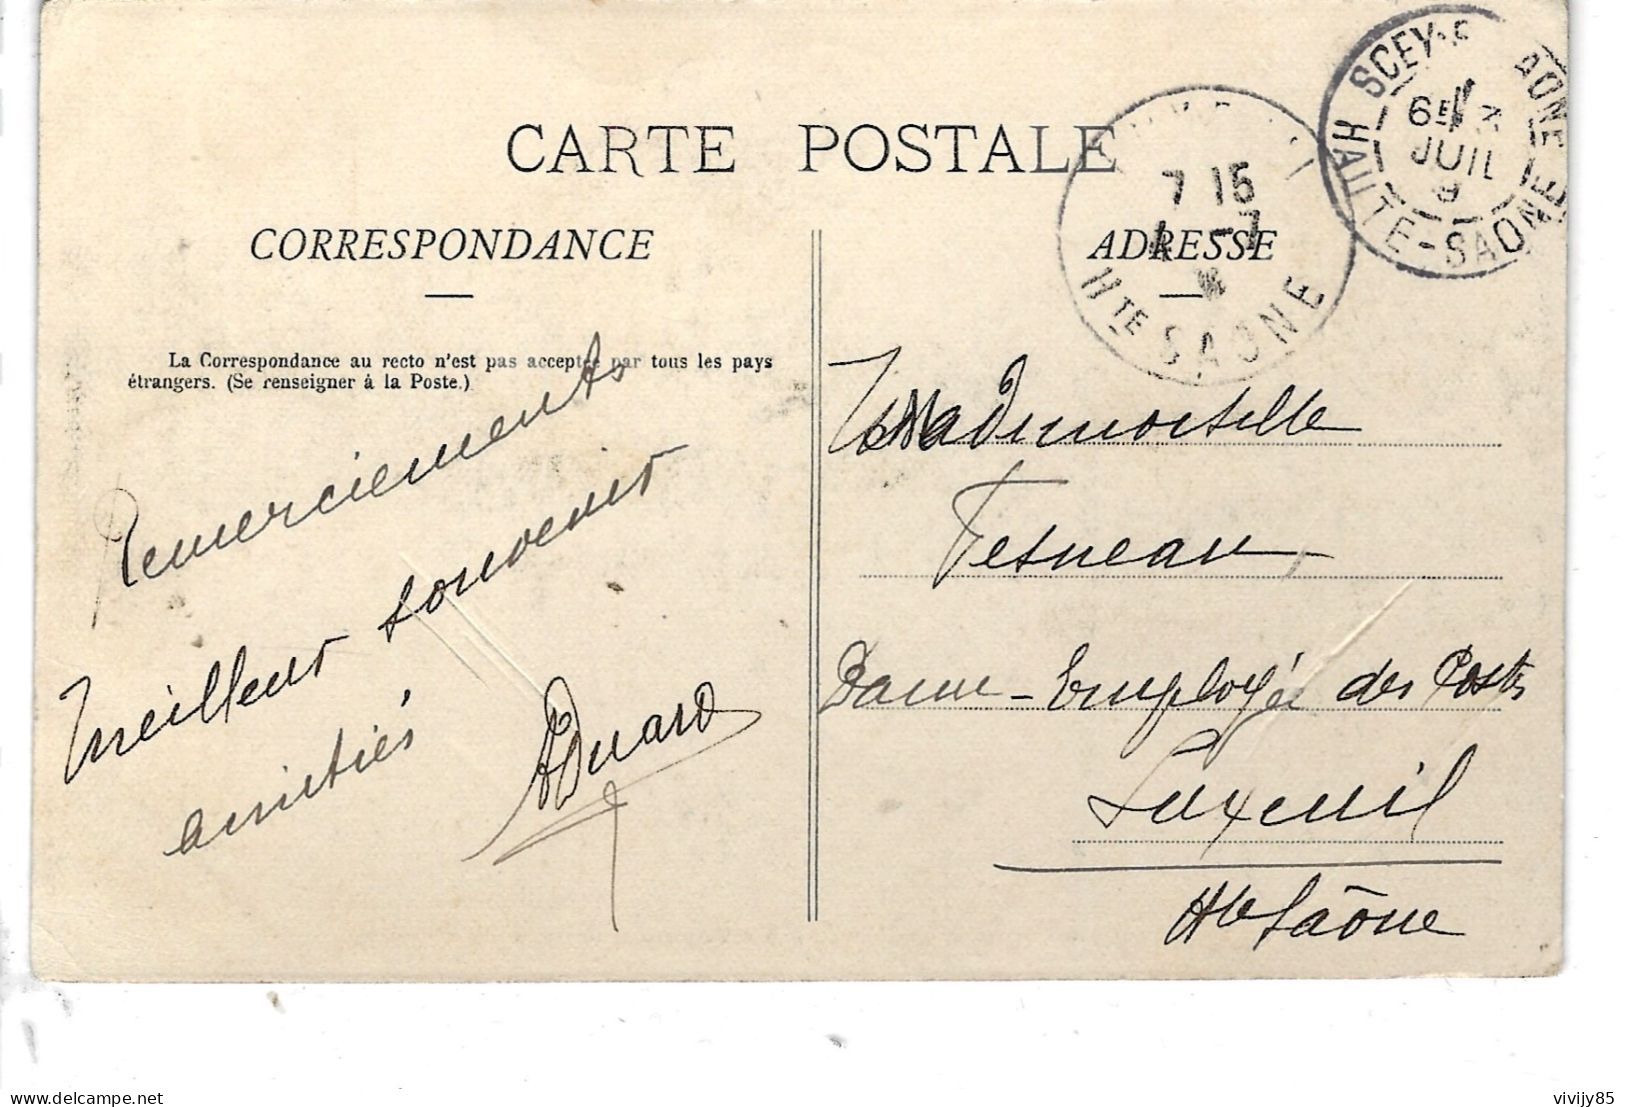 CARTE POSTALE
CORRESPONDANCE
La Correspondance au recto n'est pas acceptée par tous les pays
étrangers. (Se renseigner à la Poste.)
Remerciements
meilleur souvenir
amitiés
ADRESSE
Mademoiselle
Fesneau
Dame-Employée des Postes
Luxeuil
Hte Saône
7 15
-7
Hte SAONE
SCEY-S AONE
6E
JUIL
HAUTE-SAONE
delcampe.net
vivijy85